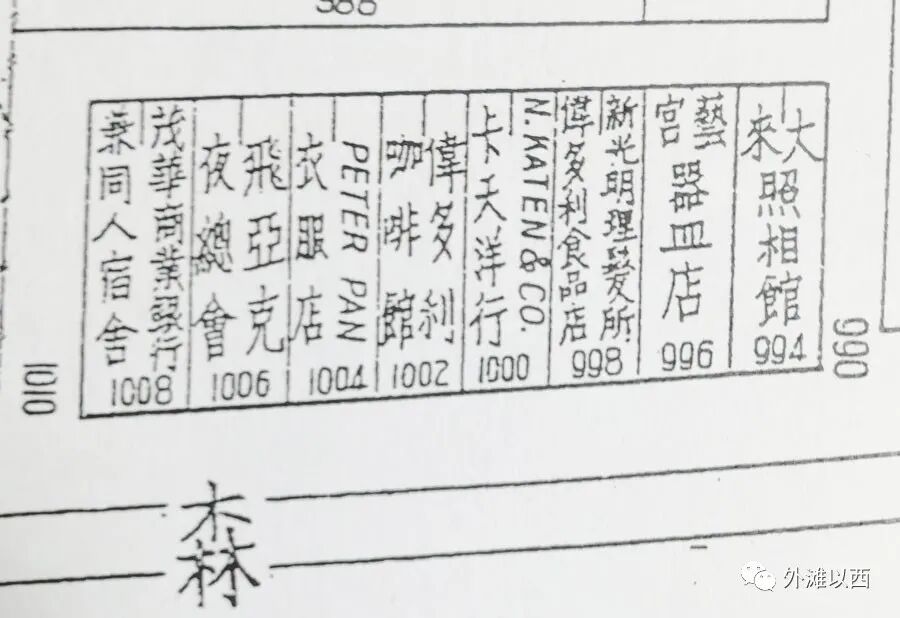 大來
照相館
994
藝宮
器皿店
996
新光明理髮所
偉多利食品店
998
N.KATEN & CO.
卡天洋行
1000
偉多利
咖啡館
1002
PETER PAN
衣服店
1004
飛亞克
夜總會
1006
茂華商業銀行
同人宿舍
1008
990
1010
森
外滩以西